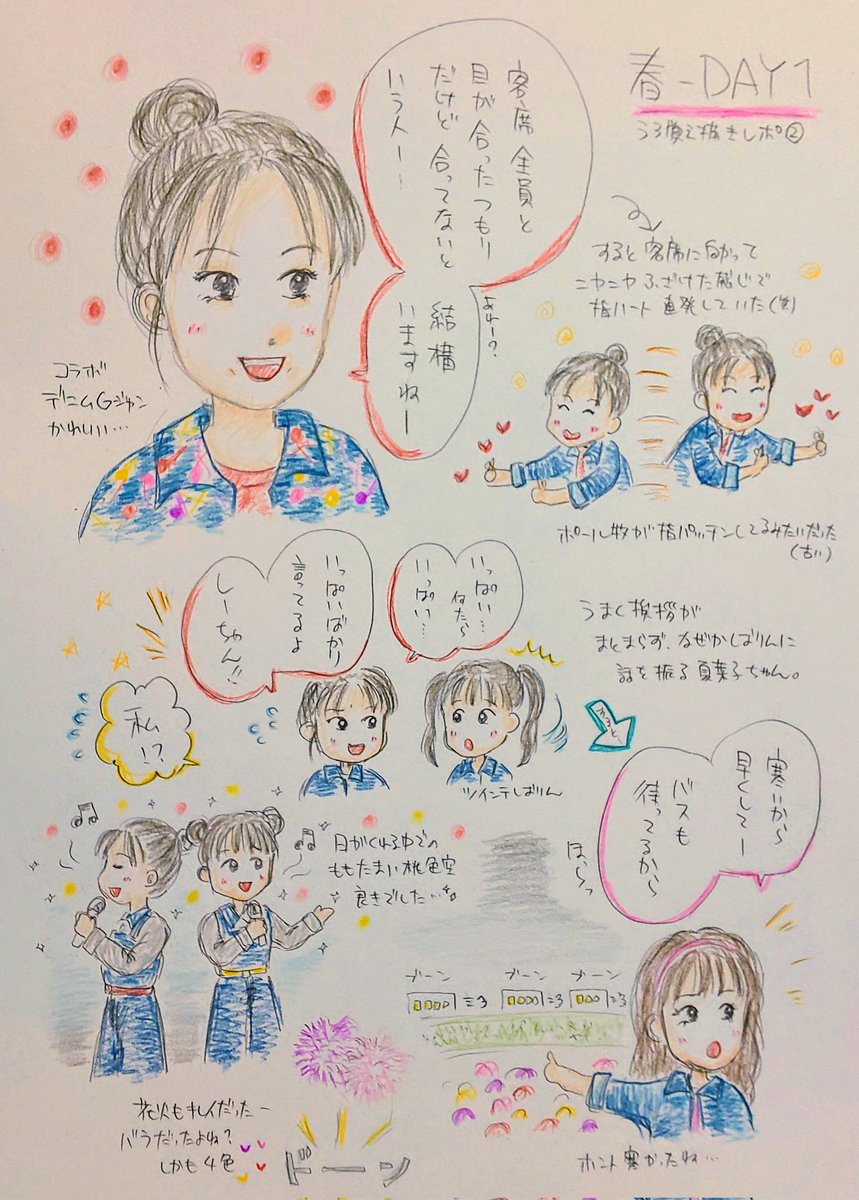 春-DAY1
うろ覚え描きレポ②
客席全員と
目が合ったつもり
だけど合ってないと
いう人ー…
結構
いますねー
あれー?
コラボ
デニムGジャン
かわいい…
すると客席に向かって
ニヤニヤふざけた感じで
指ハート連発していた(笑)
ポール牧が指パッチンしてるみたいだった
(古い)
うまく挨拶が
まとまらず、なぜかしばりんに
話を振る夏菜子ちゃん。
いっぱい…
ねたら
いっぱい…
いっぱいばかり
言ってるよ
しーちゃん!!
私
!?
ツインテしばりん
すると、
寒いから
早くしてー
バスも
待ってるから
ほらっ
日がくれる中での
ももたまい桃色空
良きでした…。
ブーン
ブーン
ブーン
花火もキレイだったー
バラだったよね?
しかも4色
ドーン
ホント寒かったね…